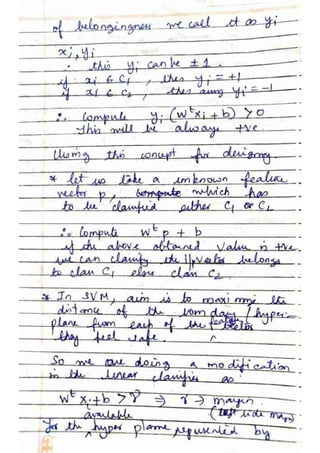 of belongingness we call it as yi
xi, yi
∴ this yi can be ± 1.
if xi ∈ C1, then yi = +1
if xi ∈ C2, then yi = -1
∴ Compute yi (Wᵗxi + b) > 0
This will be always +ve
Using this concept for designing
* let us take a unknown feature
vector p, which has
to be classified either C1 or C2
∴ Compute Wᵗp + b
if the above obtained value is +ve
we can classify the i/p vector belongs
to class C1 else class C2.
* In SVM, aim is to maximize the
distance of the boundary / hyper-
plane from each of the feature vector
they feel safe.
So we are doing a modification
in the linear classifier as
Wᵗxi + b > γ ⇒ γ → margin
(side margin)
for the available hyper plane represented by